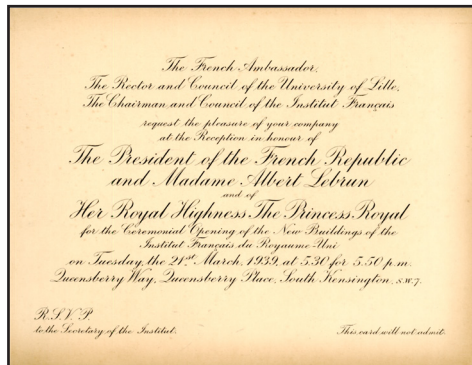 The French Ambassador,
The Rector and Council of the University of Lille,
The Chairman and Council of the Institut Français
request the pleasure of your company
at the Reception in honour of
The President of the French Republic
and Madame Albert Lebrun
and of
Her Royal Highness The Princess Royal
for the Ceremonial Opening of the New Buildings of the
Institut Français du Royaume-Uni
on Tuesday, the 21st March, 1939, at 5.30 for 5.50 p.m.
Queensberry Way, Queensberry Place, South Kensington, S.W.7.
R.S.V.P.
to the Secretary of the Institut.
This card will not admit.